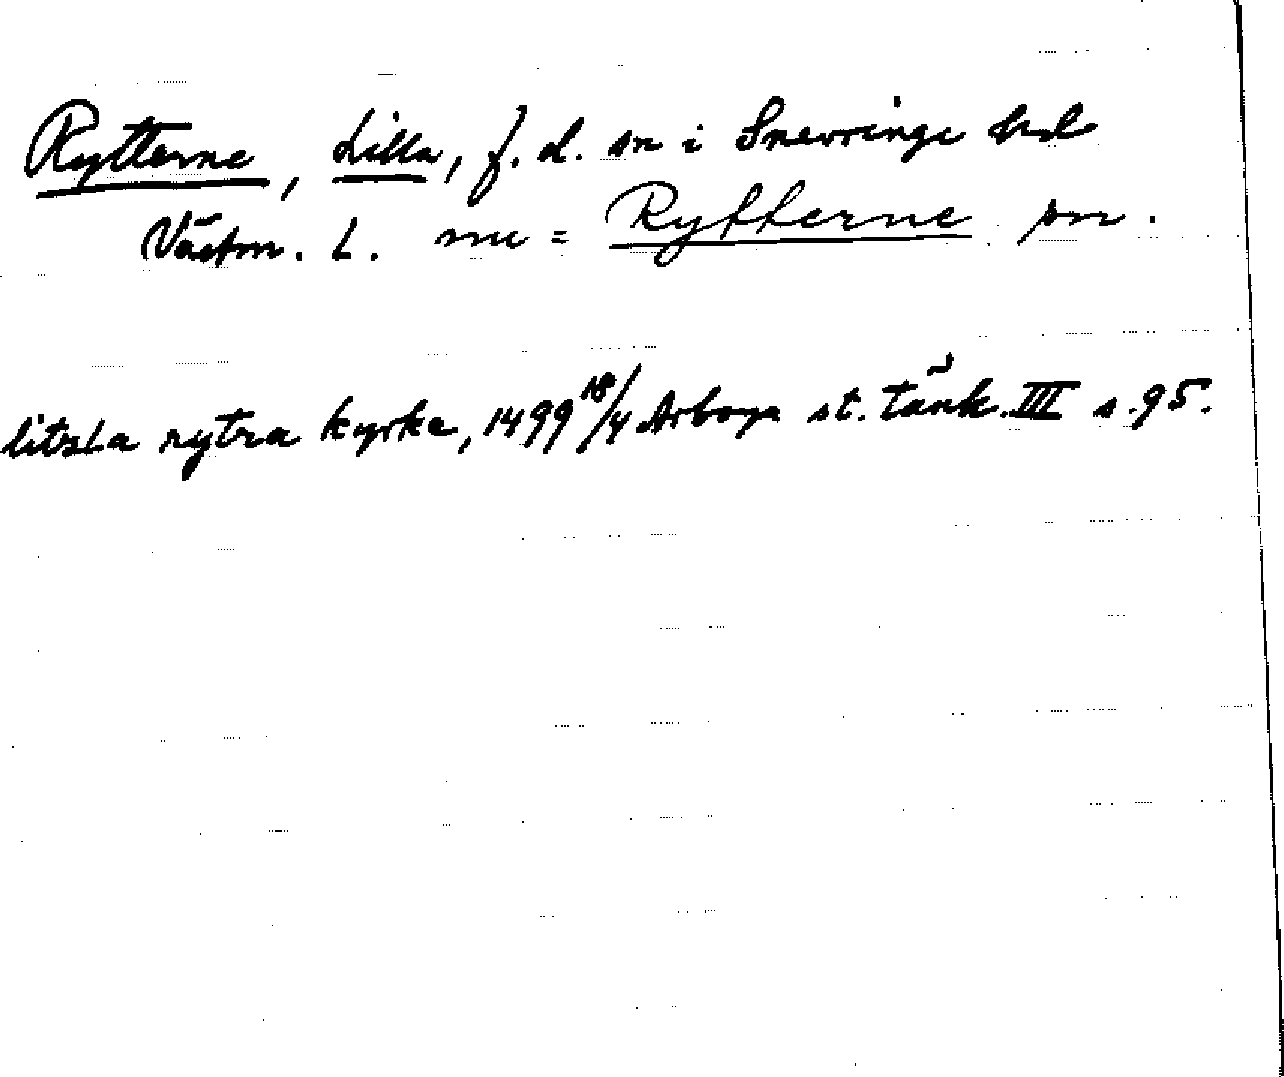 Rytterne, Lilla, f.d. sn i Snevringe hd
Västm. L. nu = Rytterne sn.
litsla rytra kyrka, 1499 18/4 Arboga st. tänk. III s. 95.